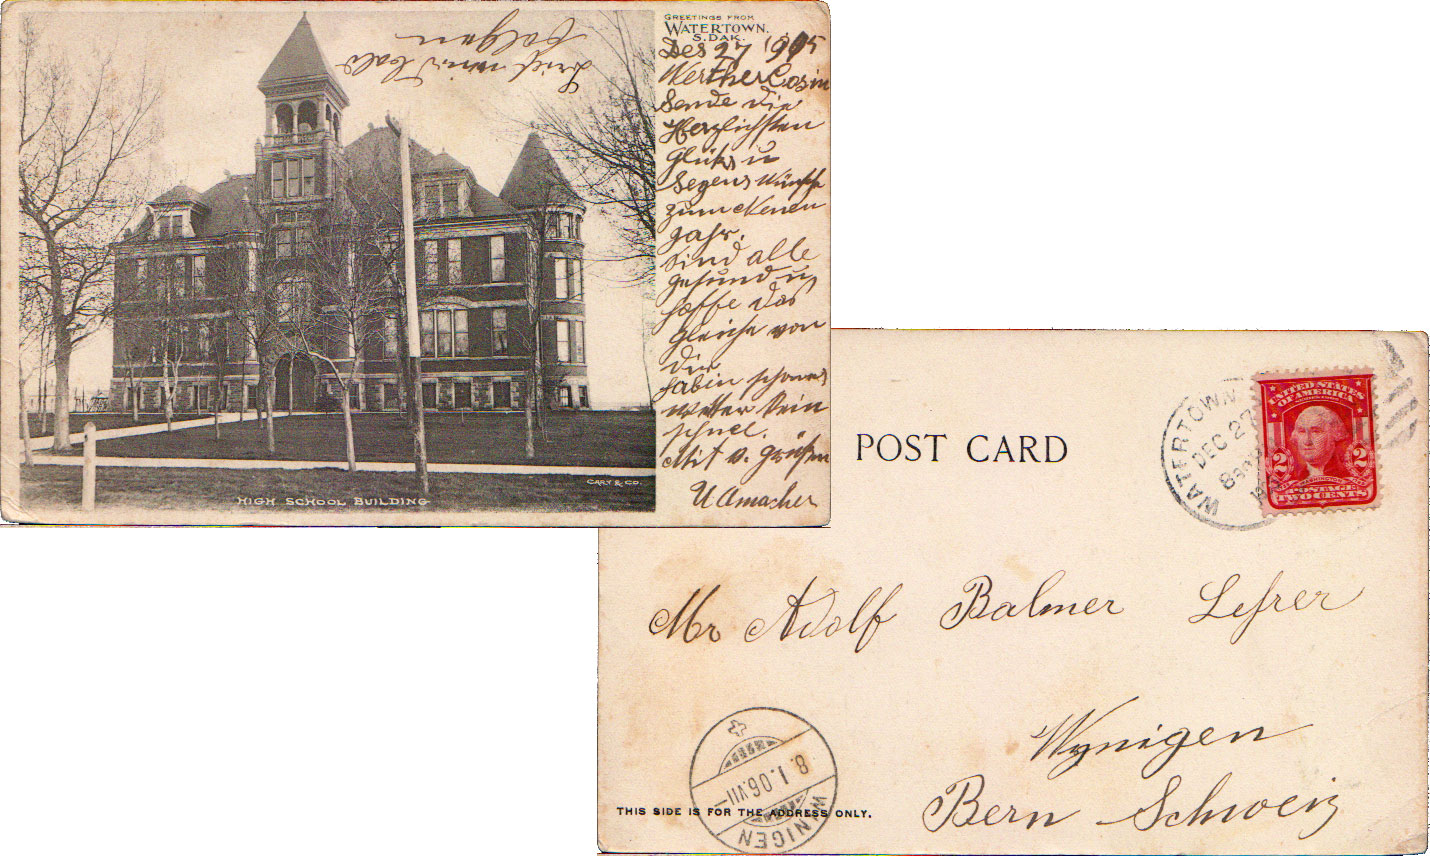 GREETINGS FROM
WATERTOWN.
S. DAK.
Des 27 1905
Werther Cosin
Sende die
Herzlichsten
Glüks u
Segens Wünsche
zum Neuen
Jahr.
Sind alle
gesund u
hoffe das
gleiche von
dir
habin schönes
Wetter kein
schnee.
Mit v. Grüßen
U Amacher
Brief wird bald
folgen
CARY & CO.
HIGH SCHOOL BUILDING
POST CARD
WATERTOWN
DEC 27
8
UNITED STATES
OF AMERICA
2 2
POSTAGE
TWO CENTS
Mr Adolf Balmer Lehrer
Wynigen
Bern Schweiz
8.1.06.VII
WYNIGEN
THIS SIDE IS FOR THE ADDRESS ONLY.